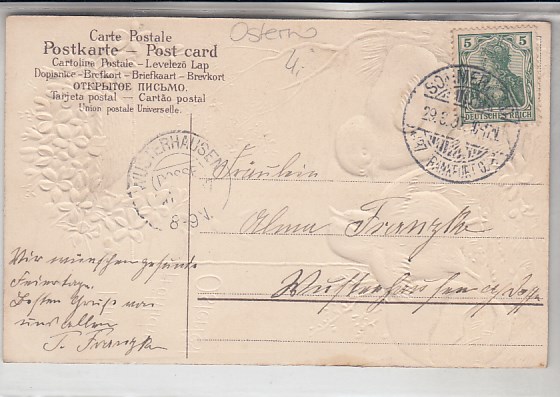 Ostern
4,-
Carte Postale
Postkarte – Post card
Cartoline Postale – Levelező Lap
Dopisnice – Brefkort – Briefkaart – Brevkort
ОТКРЫТОЕ ПИСЬМО.
Tarjeta postal – Cartão postal
Union postale Universelle.
5 5
DEUTSCHES REICH
WUSTERHAUSEN
(DOSSE)
8-9N.
Fräulein
Alma Franzke
Wusterhausen a/Dosse
Wir wünschen gesunde
Feiertage.
Besten Gruß von
uns allen